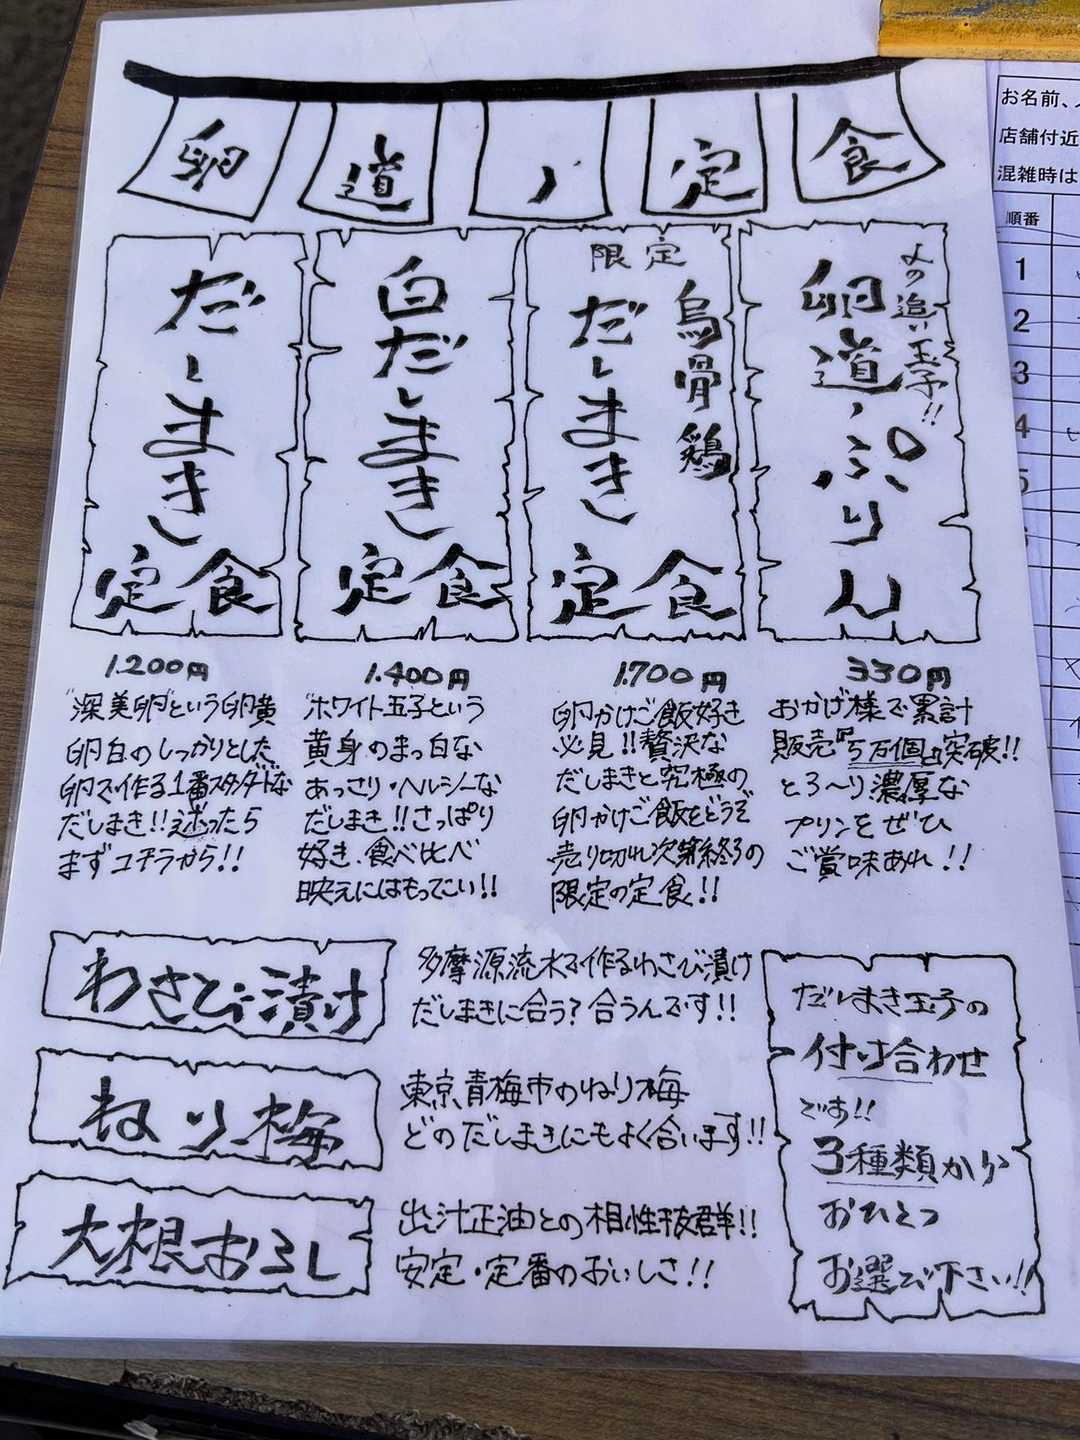 卵道ノ定食
だしまき
定食
1.200円
"深美卵"という卵黄
卵白のしっかりとした
卵で作る1番スタンダードな
だしまき!!迷ったら
まずコチラから!!
白だしまき
定食
1.400円
"ホワイト玉子という
黄身のまっ白な
あっさり・ヘルシーな
だしまき!!さっぱり
好き、食べ比べ
映えにはもってこい!!
限定
烏骨鶏
だしまき
定食
1.700円
卵かけご飯好き
必見!!贅沢な
だしまきと究極の
卵かけご飯をどうぞ
売り切れ次第終了の
限定の定食!!
〆の追い玉子!!
卵道ノぷりん
330円
おかげ様で累計
販売『5万個』突破!!
とろ〜り濃厚な
プリンをぜひ
ご賞味あれ!!
わさび漬け
多摩源流水で作るわさび漬け
だしまきに合う?合うんです!!
ねり梅
東京青梅市のねり梅
どのだしまきにもよく合います!!
大根おろし
出汁正油との相性抜群!!
安定・定番のおいしさ!!
だしまき玉子の
付け合わせ
です!!
3種類から
おひとつ
お選び下さい!!
お名前、
店舗付近
混雑時は
順番
1
2
3
4
5